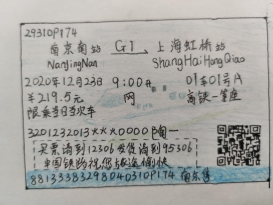 29310P174
南京南站 G1 上海虹桥站
NanJingNan ShangHaiHongQiao
2020年12月23日 9:00开 01车01号A
¥219.5元 网 高铁一等座
限乘当日当次车
3201232013×××0000陶一
买票请到12306 发货请到95306
中国铁路祝您旅途愉快
8813338329804031OP174 南京售